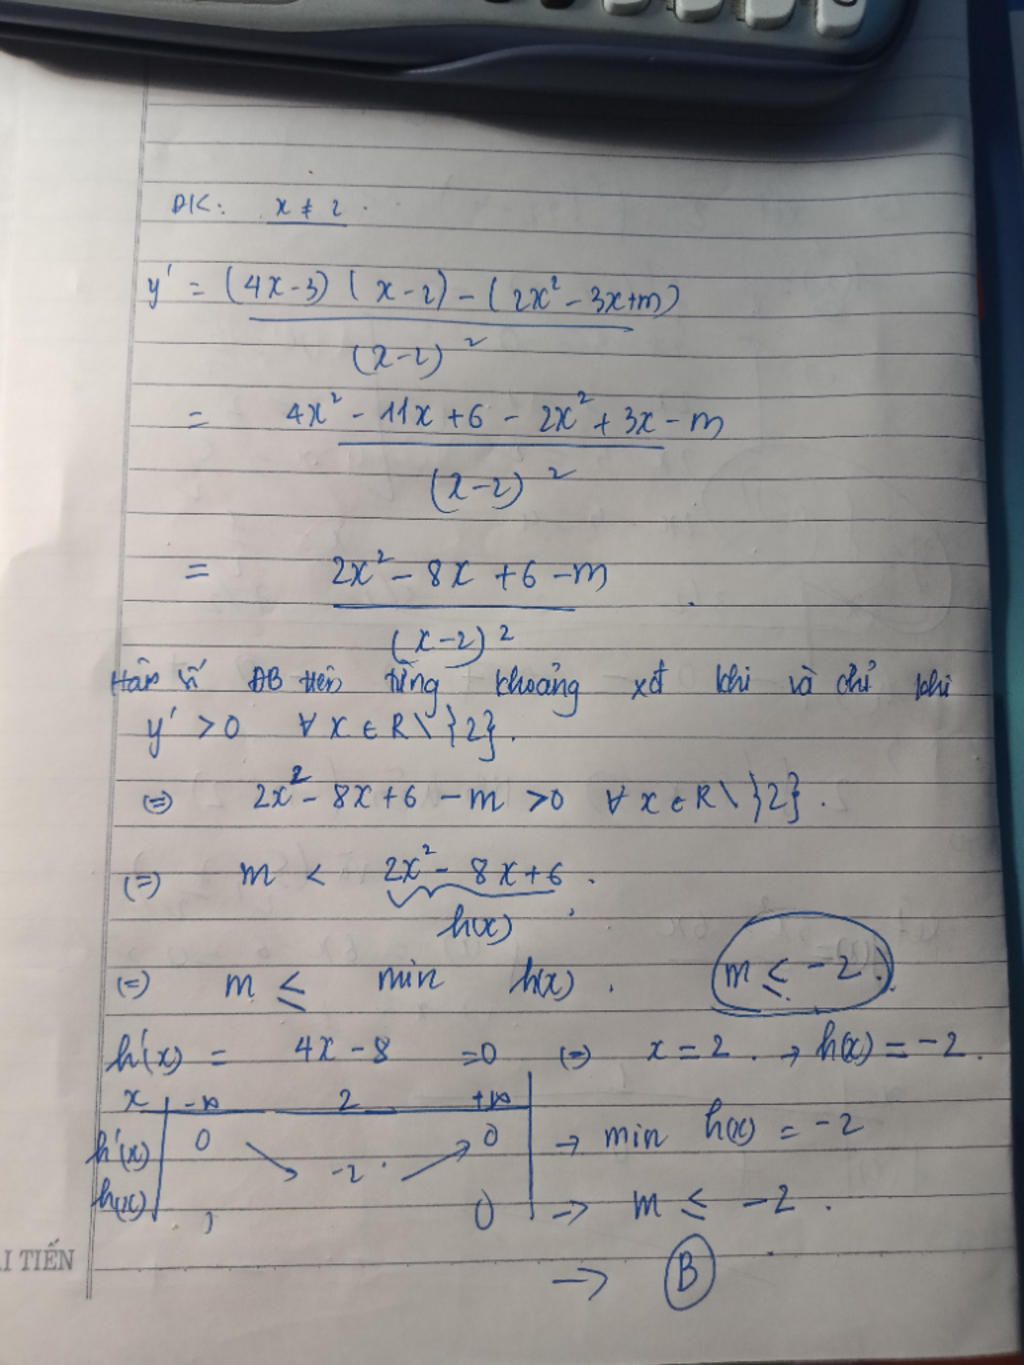 ĐK: x ≠ 2.
y' = (4x-3)(x-2) - (2x² - 3x+m)
(x-2)²
= 4x² - 11x + 6 - 2x² + 3x - m
(x-2)²
= 2x² - 8x + 6 - m
(x-2)²
Hàm số ĐB trên từng khoảng xđ khi và chỉ khi
y' > 0 ∀ x ∈ R \ {2}.
(=) 2x² - 8x + 6 - m > 0 ∀ x ∈ R \ {2}.
(=) m < 2x² - 8x + 6.
h(x)
(=) m ≤ min h(x). m ≤ -2.
h'(x) = 4x - 8 = 0 (=) x = 2. → h(x) = -2.
x -∞ 2 +∞
h'(x) 0 -2 0 → min h(x) = -2
h(x) 0 → m ≤ -2.
I TIẾN
→ B